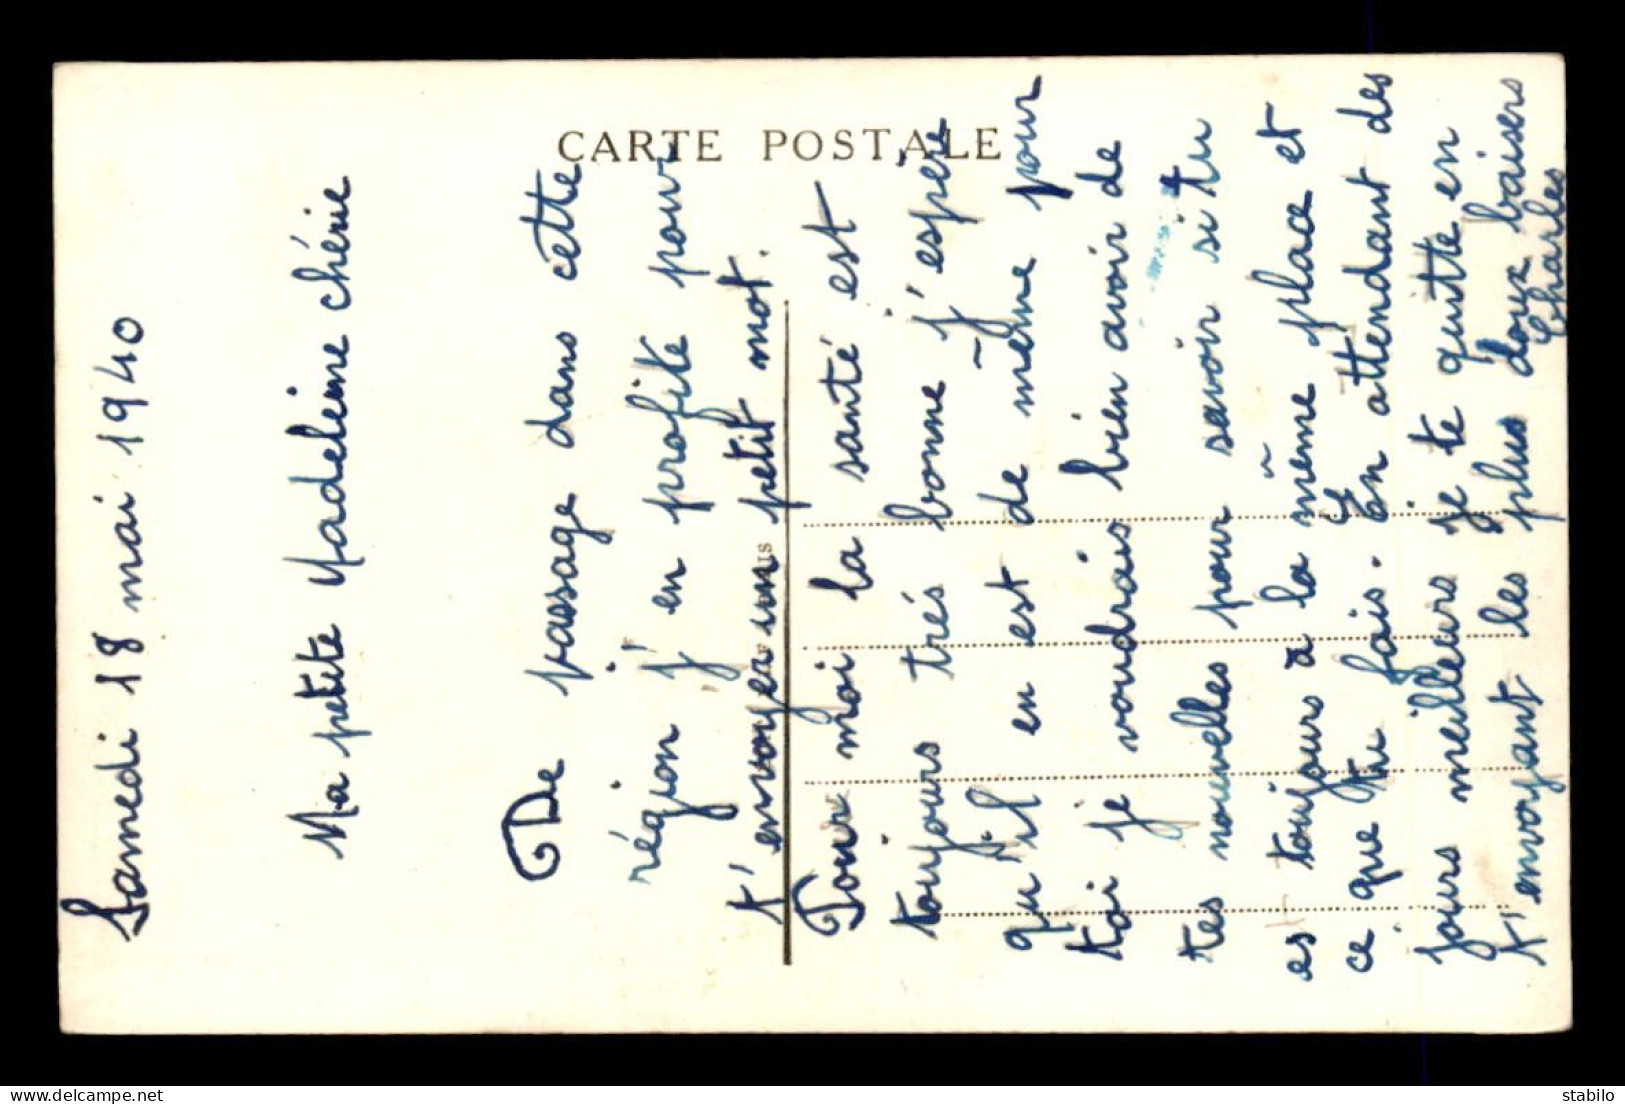 CARTE POSTALE
Samedi 18 mai 1940
Ma petite Madeleine chérie
De passage dans cette
région j'en profite pour
t'envoyer un petit mot.
Pour moi la santé est
toujours trés bonne j'espère
qu'il en est de même pour
toi je voudrais bien avoir de
tes nouvelles pour savoir si tu
es toujours à la même place et
ce que tu fais. En attendant des
jours meilleurs je te quitte en
t'envoyant les plus doux baisers
Charles
delcampe.net
stabilo